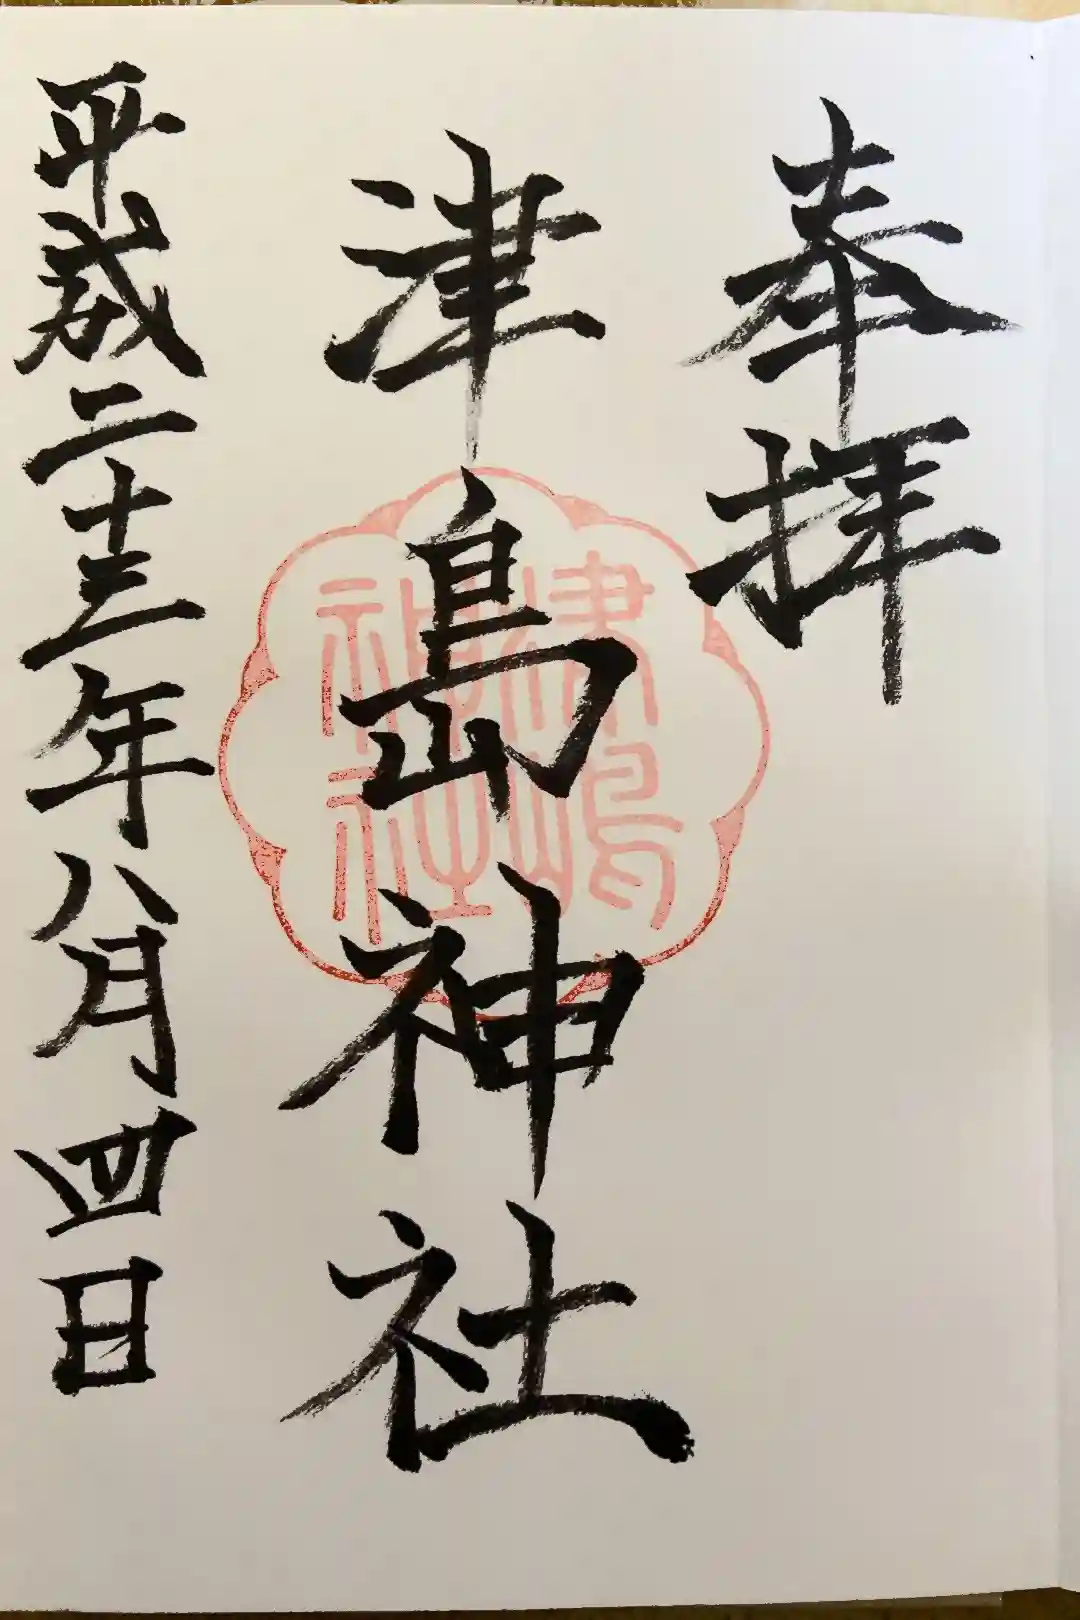 奉拝
津島神社
津嶋
神社
平成二十三年八月四日